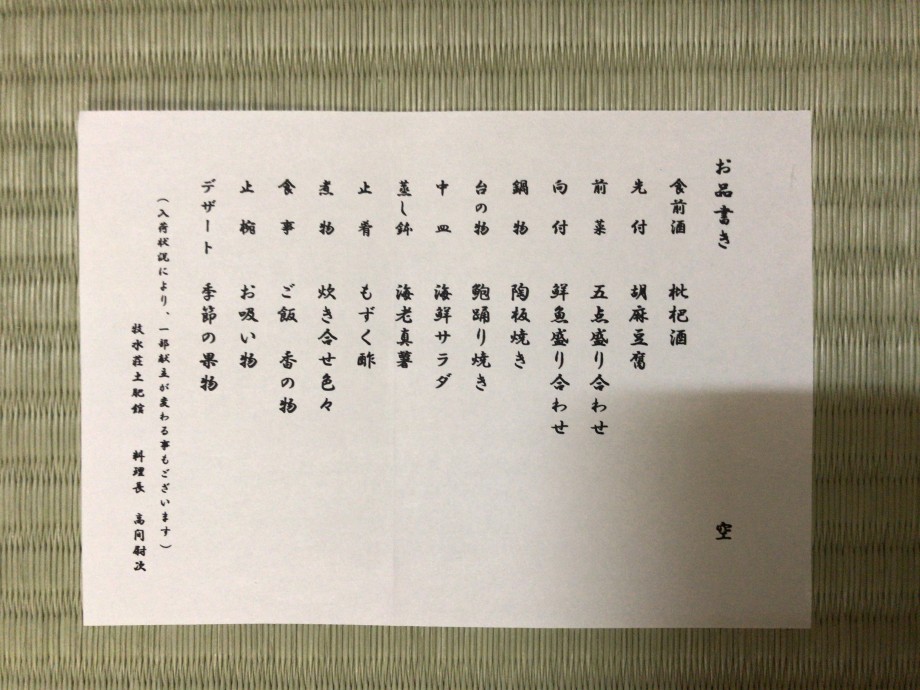 お品書き　空
食前酒　枇杷酒
先付　胡麻豆腐
前菜　五点盛り合わせ
向付　鮮魚盛り合わせ
鍋物　陶板焼き
台の物　鮑踊り焼き
中皿　海鮮サラダ
蒸し鉢　海老真薯
止肴　もずく酢
煮物　炊き合せ色々
食事　ご飯　香の物
止椀　お吸い物
デザート　季節の果物
（入荷状況により、一部献立が変わる事もございます）
牧水荘土肥館　料理長　高問尉次